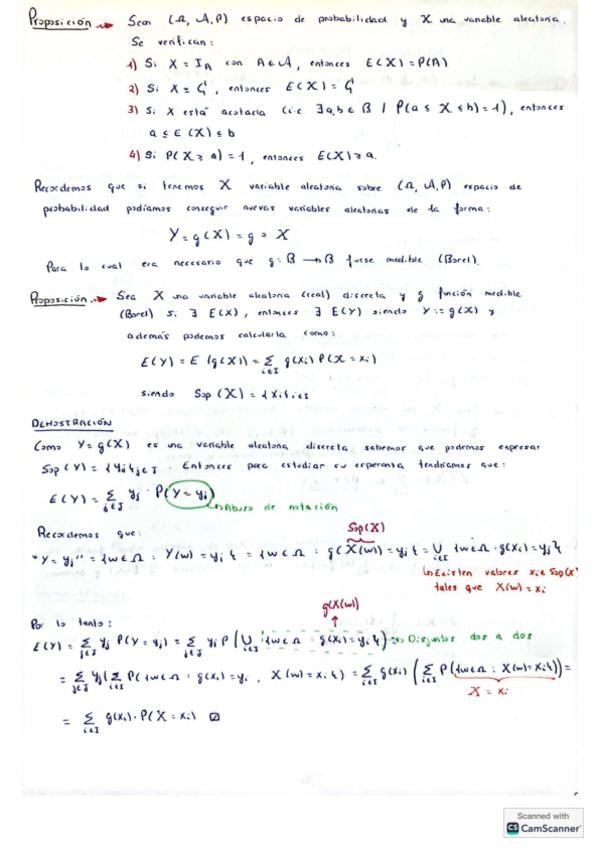 Proposición → Sean (Ω, A, P) espacio de probabilidad y X una variable aleatoria.
Se verifican:
1) Si X = I_A con A ∈ A, entonces E(X) = P(A)
2) Si X = G, entonces E(X) = G
3) Si X está acotada (i.e ∃ a,b ∈ B / P(a ≤ X ≤ b) = 1), entonces
a ≤ E(X) ≤ b
4) Si P(X ≥ a) = 1, entonces E(X) ≥ a.
Recordemos que si tenemos X variable aleatoria sobre (Ω, A, P) espacio de
probabilidad podíamos conseguir nuevas variables aleatorias de la forma:
Y = g(X) = g ∘ X
Para lo cual era necesario que g: B → B fuese medible (Borel).
Proposición → Sea X una variable aleatoria (real) discreta y g función medible
(Borel) si ∃ E(X), entonces ∃ E(Y) siendo Y := g(X) y
además podemos calcularla como:
E(Y) = E(g(X)) = Σ_{i∈I} g(xi) P(X = xi)
siendo Sop(X) = {xi}_{i∈I}
DEMOSTRACIÓN
Como Y = g(X) es una variable aleatoria discreta sabemos que podemos expresar
Sop(Y) = {yj}_{j∈J}. Entonces para estudiar su esperanza tendríamos que:
E(Y) = Σ_{j∈J} yj · P(Y = yj)
↳ Abuso de notación
Recordemos que:
Sop(X)
"Y = yj" = {w ∈ Ω : Y(w) = yj} = {w ∈ Ω : g(X(w)) = yj} = ∪_{i∈I} {w ∈ Ω : g(xi) = yj}
↳ Existen valores xi ∈ Sop(X)
tales que X(w) = xi
g(X(w))
Por lo tanto:
E(Y) = Σ_{j∈J} yj P(Y = yj) = Σ_{j∈J} yj P(∪_{i∈I} {w ∈ Ω : g(xi) = yj}) → Disjuntos dos a dos
= Σ_{j∈J} yj (Σ_{i∈I} P({w ∈ Ω : g(xi) = yi, X(w) = xi}) = Σ_{i∈I} g(xi) (Σ_{i∈I} P({w ∈ Ω : X(w) = xi}) =
X = xi
= Σ_{i∈I} g(xi) · P(X = xi) ☑
Scanned with
CS CamScanner